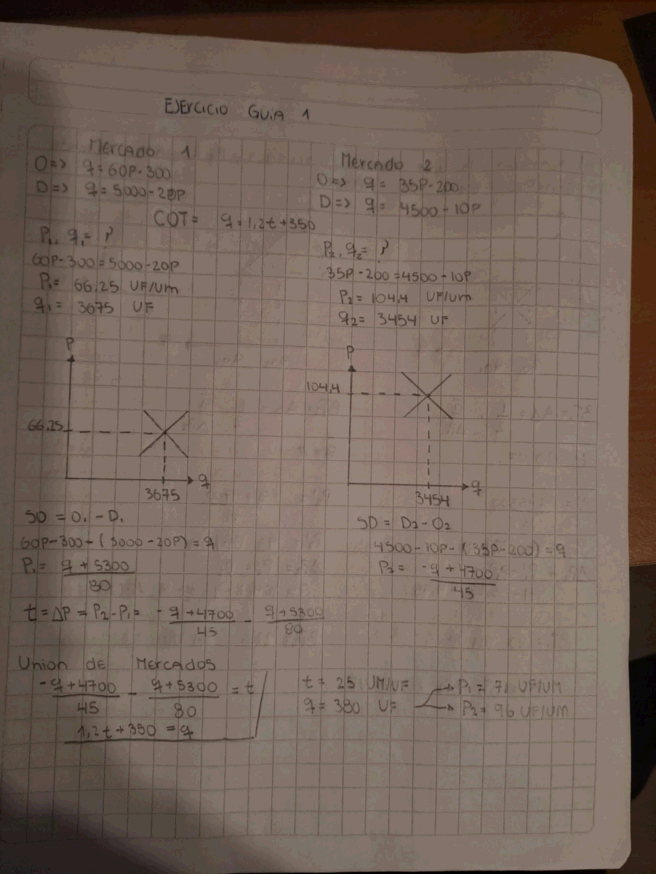 EJERCICIO GUIA 1
Mercado 1
O=> q=60P-300
D=> q=5000-20P
Mercado 2
O=> q= 35P-200
D=> q= 4500-10P
COT= q=1,2t+350
P₁, q₁= ?
60P-300=5000-20P
P₁= 66,25 UF/UM
q₁= 3675 UF
P₂, q₂= ?
35P-200=4500-10P
P₂= 104,4 UF/UM
q₂= 3454 UF
P
66,25
3675
q
P
104,4
3454
q
SO = O₁-D₁
60P-300-(5000-20P)=q
P₁= q+5300
80
SD= D₂-O₂
4500-10P-(35P-200)=q
P₂= -q+4700
45
t=ΔP=P₂-P₁= -q+4700 - q+5300
45 80
Union de Mercados
-q+4700 - q+5300 = t
45 80
1,2t+350=q
t= 25 UM/UF
q= 380 UF
P₁= 71 UF/UM
P₂= 96 UF/UM